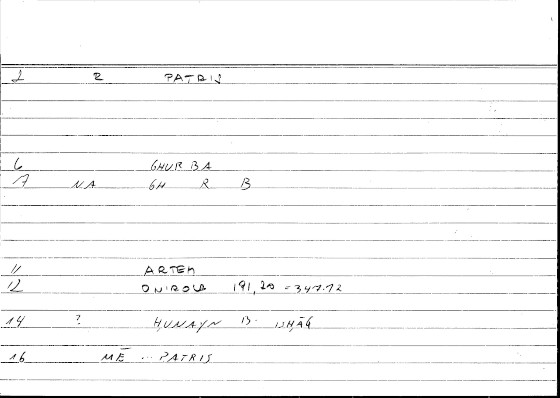 2 R PATRIS
6 GHURBA
7 NA GH R B
11 ARTEM
12 ONIROCR 191,20 = 347.12
14 ? ḤUNAYN B. ISḤĀQ
16 MĒ ... PATRIS